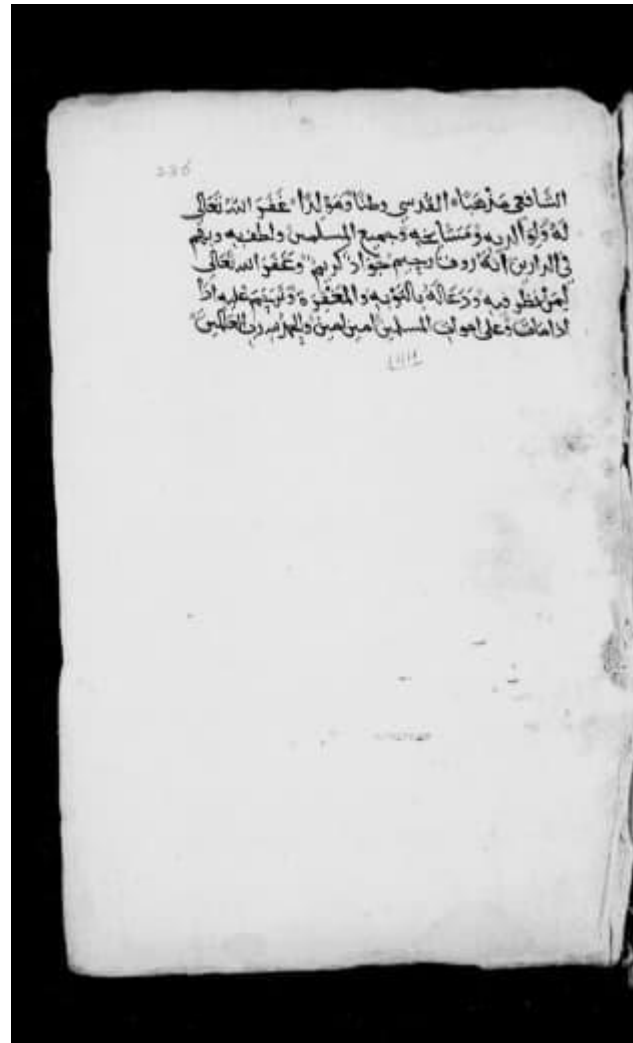 236
الشافعي مذهبا القدسي وطنا ومولدا غفر الله تعالى
له ولوالديه ومشايخه وجميع المسلمين ولطف به وبهم
في الدارين انه روف رحيم جواد كريم وغفر الله تعالى
لمن نظر فيه ودعا له بالتوبه والمغفرة وترحم عليه اذا
اذا مات وعلى اموات المسلمين امين امين والحمد لله رب العالمين